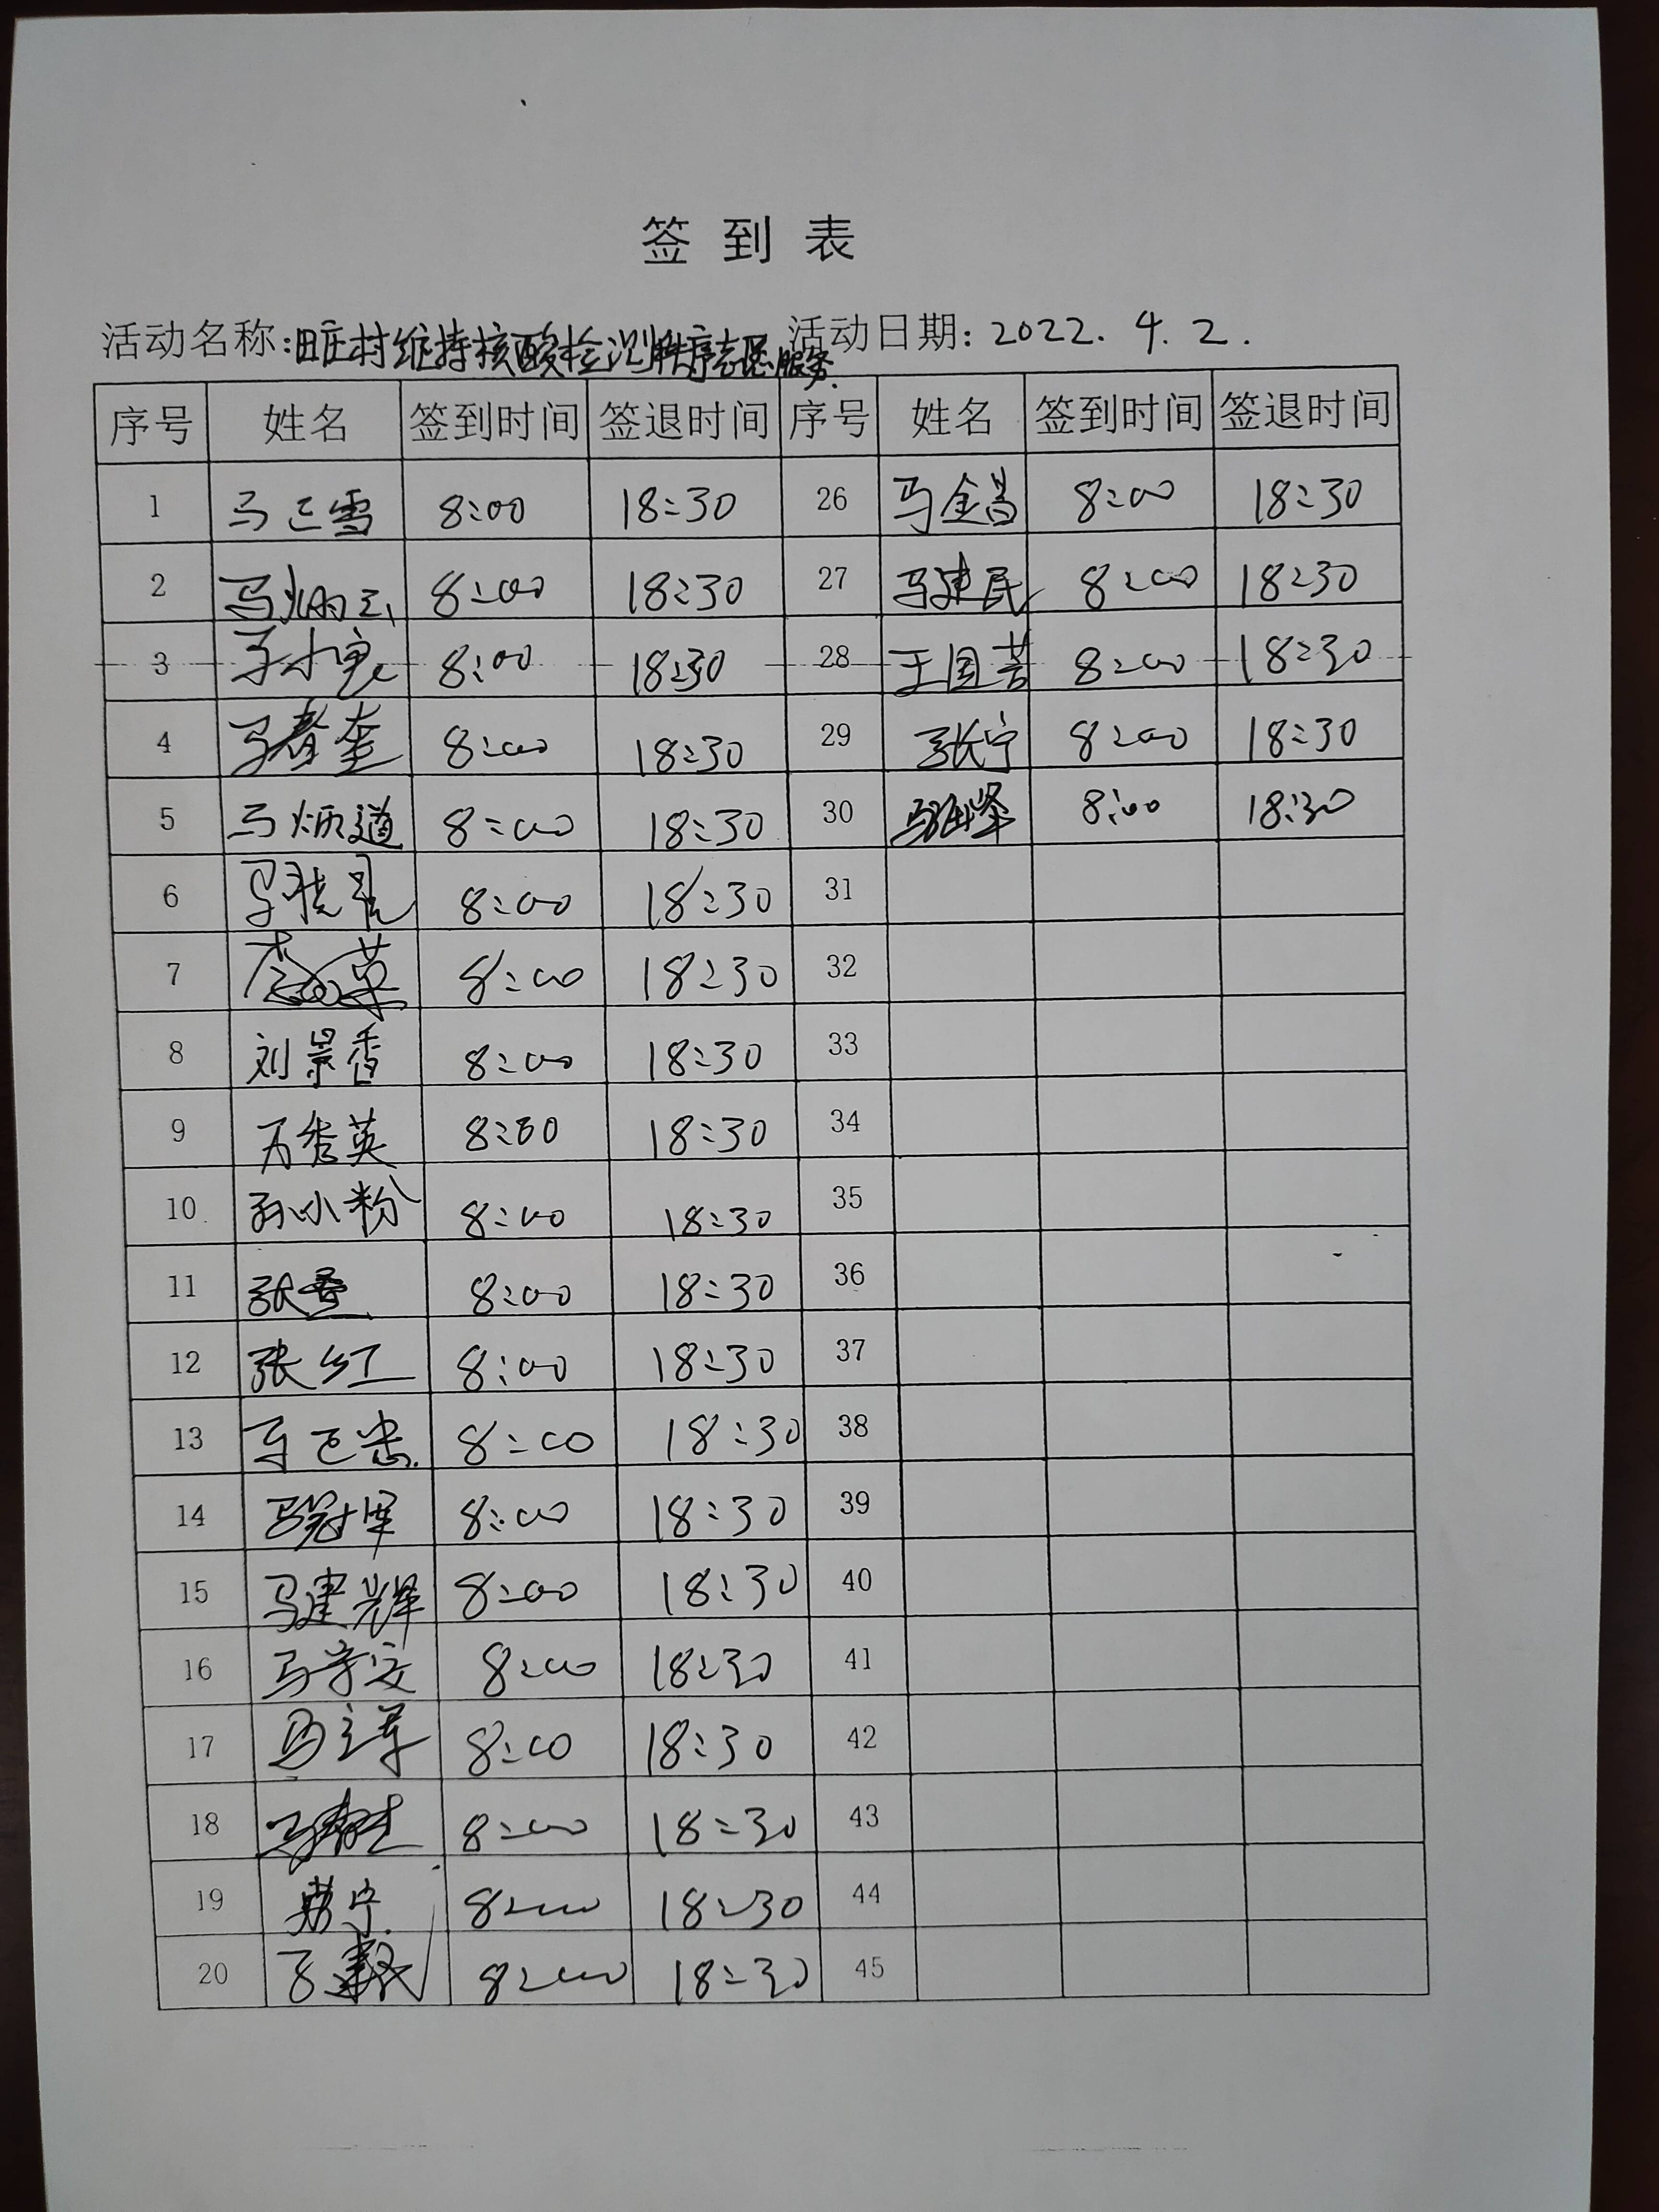 签到表
活动名称:田庄村维持核酸检测秩序志愿服务. 活动日期: 2022. 4. 2.
序号 姓名 签到时间 签退时间 序号 姓名 签到时间 签退时间
1 马正雪 8:00 18:30 26 马金昌 8:00 18:30
2 马炳 8:00 18:30 27 马建民 8:00 18:30
3 马小 8:00 18:30 28 王国芳 8:00 18:30
4 马春奎 8:00 18:30 29 张宁 8:00 18:30
5 马炳道 8:00 18:30 30 马 8:00 18:30
6 马 8:00 18:30 31
7 英 8:00 18:30 32
8 刘景香 8:00 18:30 33
9 秀英 8:00 18:30 34
10 孙小粉 8:00 18:30 35
11 张 8:00 18:30 36
12 张红 8:00 18:30 37
13 马正忠 8:00 18:30 38
14 马冠军 8:00 18:30 39
15 马建辉 8:00 18:30 40
16 马学文 8:00 18:30 41
17 马立军 8:00 18:30 42
18 马 8:00 18:30 43
19 宁 8:00 18:30 44
20 8:00 18:30 45